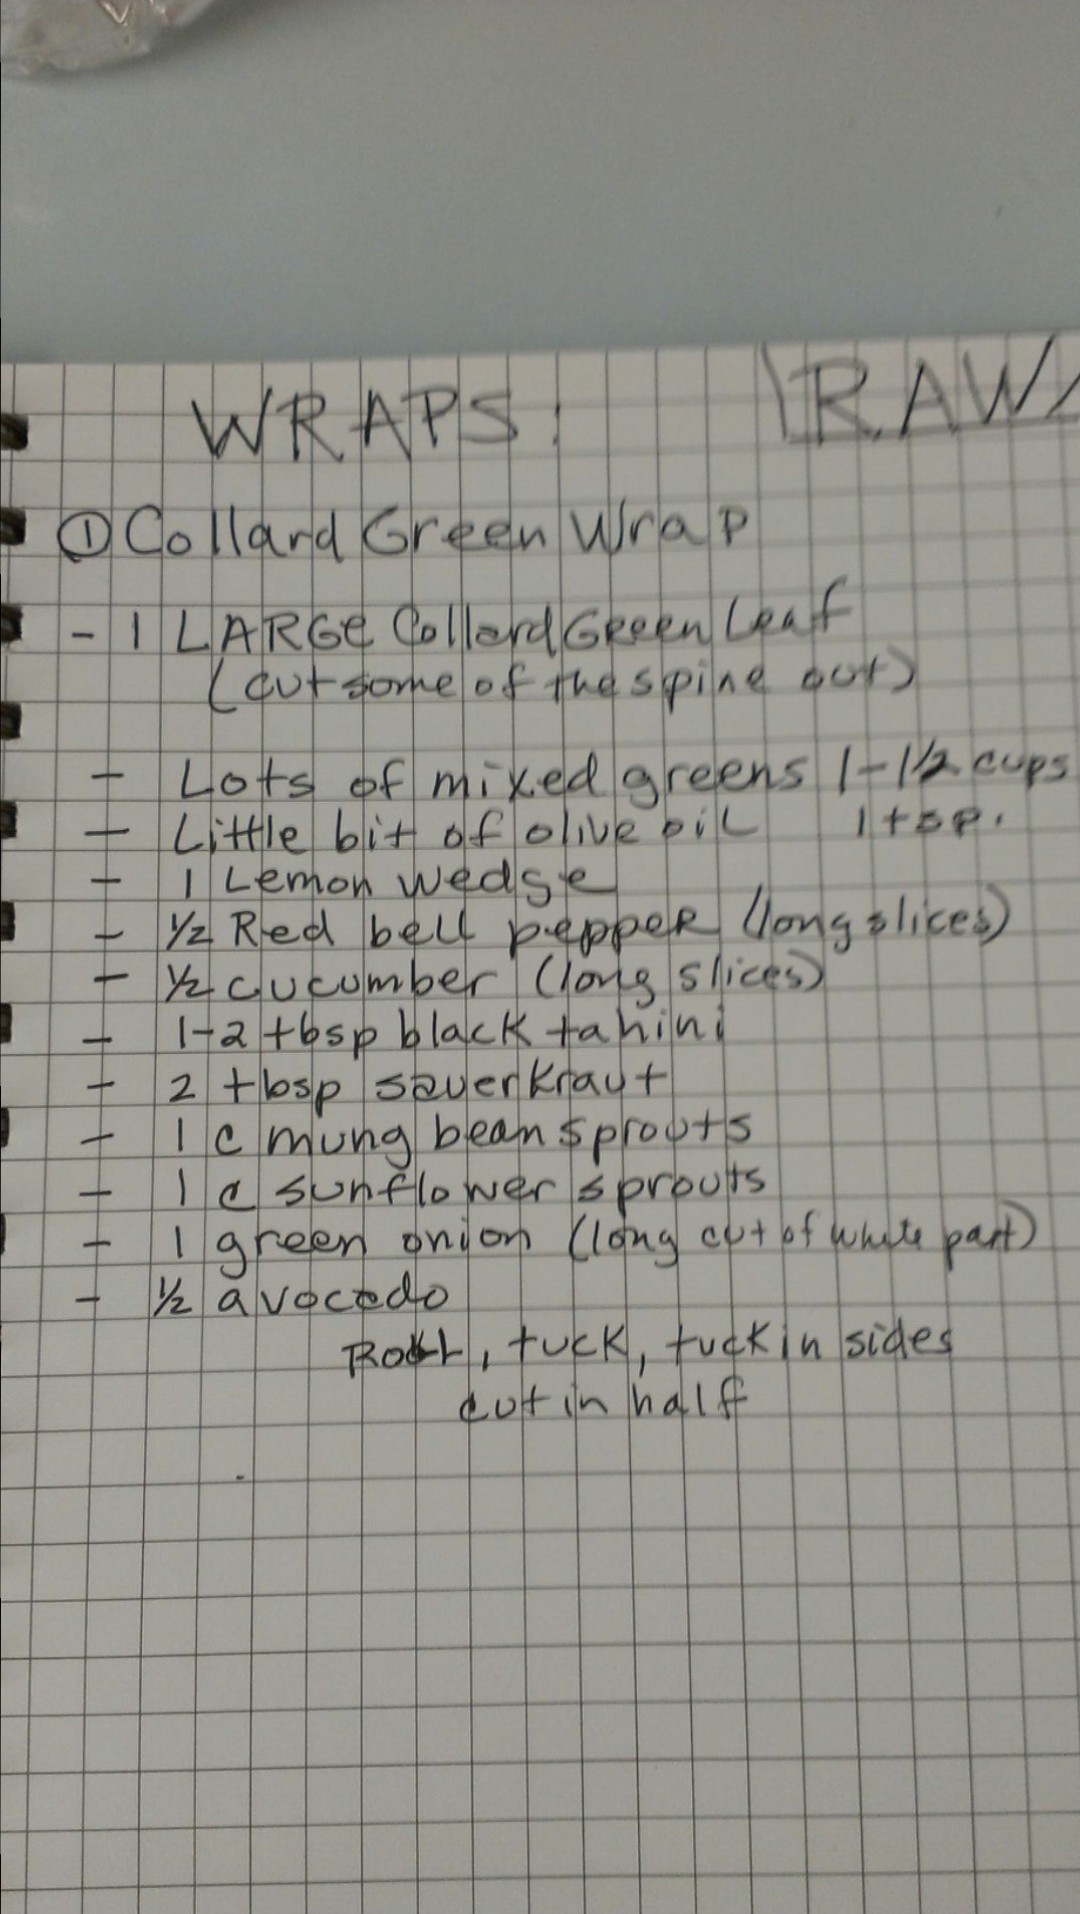 WRAPS: RAW
① Collard Green Wrap
- 1 LARGE Collard Green Leaf
(cut some of the spine out)
- Lots of mixed greens 1-1½ cups
- Little bit of olive oil 1 tsp.
- 1 Lemon wedge
- ½ Red bell pepper (long slices)
- ½ cucumber (long slices)
- 1-2 tbsp black tahini
- 2 tbsp sauerkraut
- 1 c mung bean sprouts
- 1 c sunflower sprouts
- 1 green onion (long cut of white part)
- ½ avocado
Roll, tuck, tuck in sides
cut in half